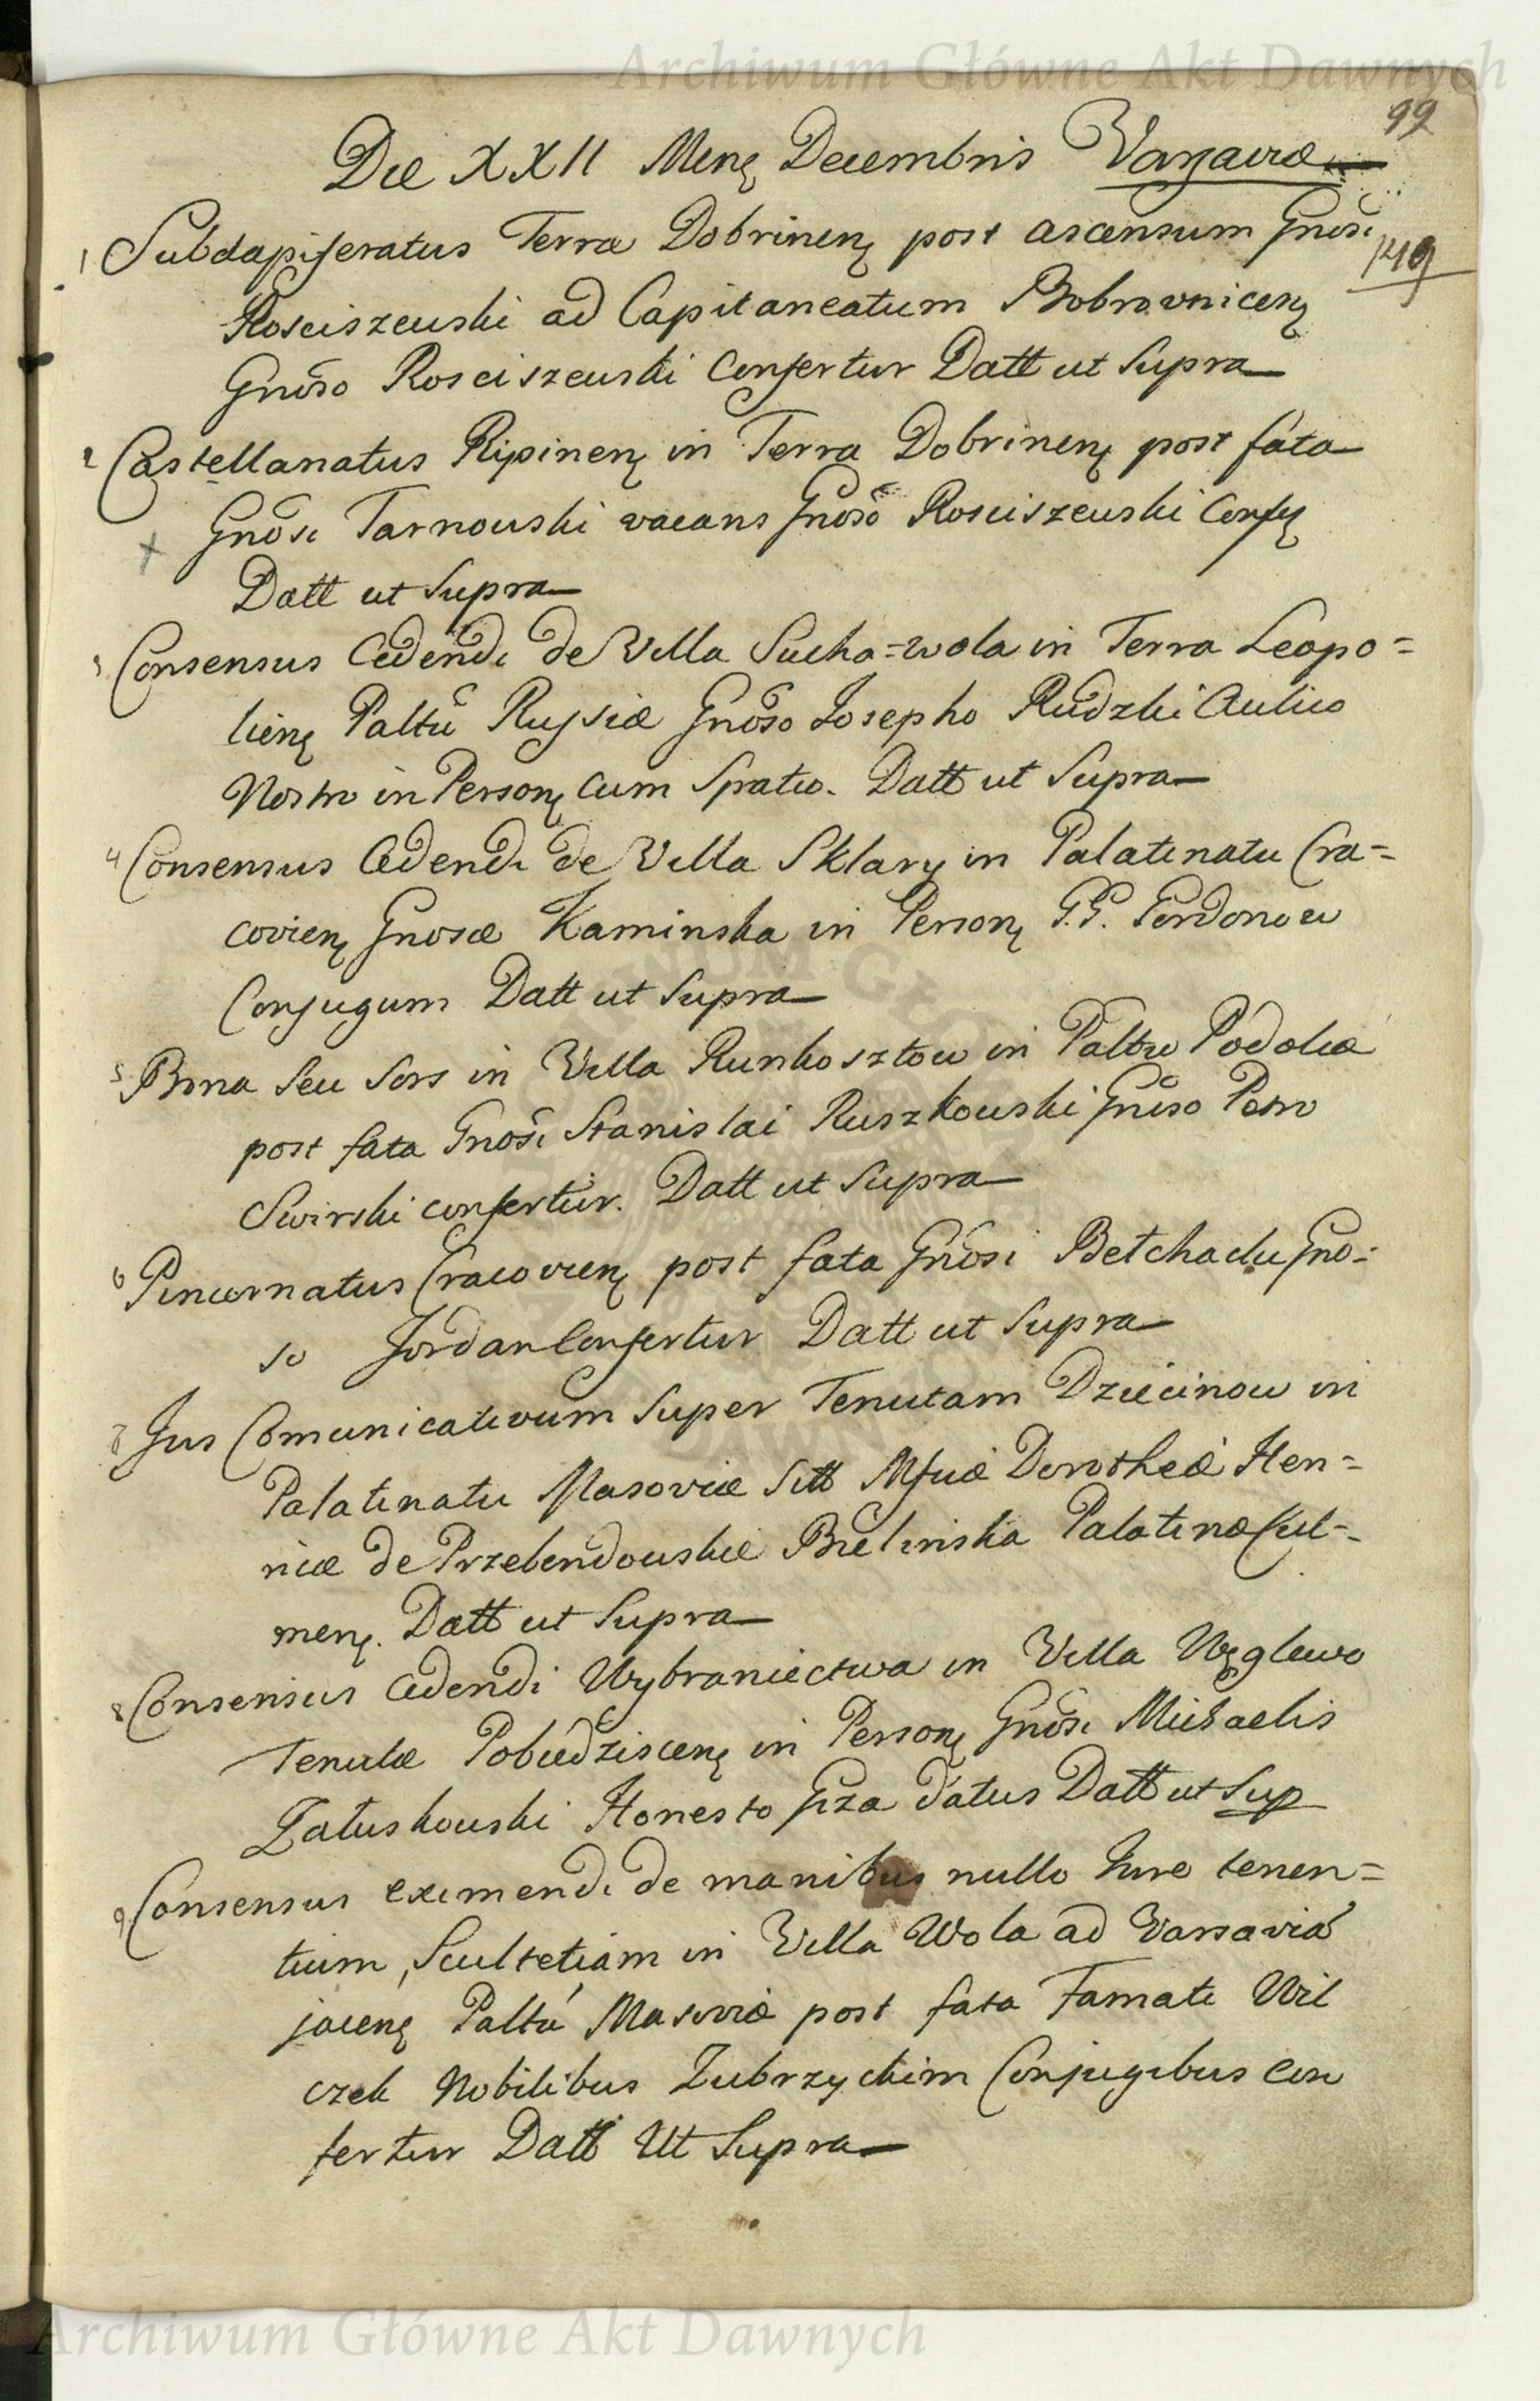 Archiwum Główne Akt Dawnych
99
Die XXII Menę Decembris Varsaviæ
1 Subdapiferatus Terræ Dobrinenę post ascensum Gnosi
149
Rosciszewski ad Capitaneatum Bobrownicenę
Gnoso Rosciszewski Confertur Datt ut Supra
2 Castellanatus Ripinenę in Terra Dobrinenę post fata
Gnosi Tarnowski vacans Gnoso Rosciszewski Confę
Datt ut Supra
3 Consensus Cedendi de Villa Sucha=wola in Terra Leopo=
lienę Paltu Russiæ Gnoso Josepho Rudzki Aulico
Nostro in Personę cum Spatio. Datt ut Supra
4 Consensus Cedendi de Villa Sklary in Palatinatu Cra=
covienę Gnosæ Kaminska in Personę G.G. Perdonow
Conjugum Datt ut Supra
5 Bona seu Sors in Villa Runkosztow in Paltu Podoliæ
post fata Gnosi Stanislai Ruszkowski Gnoso Petro
Swirski confertur. Datt ut Supra
6 Pincernatus Cracovienę post fata Gnosi Betchacki Gno=
so Jordan Confertur Datt ut Supra
7 Jus Comunicativum Super Tenutam Dziecinow in
Palatinatu Masoviæ Sitt Mfnæ Dorotheæ Hen=
ricæ de Przebendowskie Bielinska Palatinæ Cul=
menę. Datt ut Supra
8 Consensus Cedendi Wybraniectwa in Villa Węglewo
Tenutæ Pobiedziscenę in Personę Gnosi Michaelis
Załuskowski Honesto Giza datus Datt ut Sup
9 Consensus eximendi de manibus nullo Jure tenen=
tium, Scultetiam in Villa Wola ad Varsaviā
jacenę Paltu Masoviæ post fata Famati Wil
czek Nobilibus Zubrzyckim Conjugibus Con
fertur Datt Ut Supra
Archiwum Główne Akt Dawnych